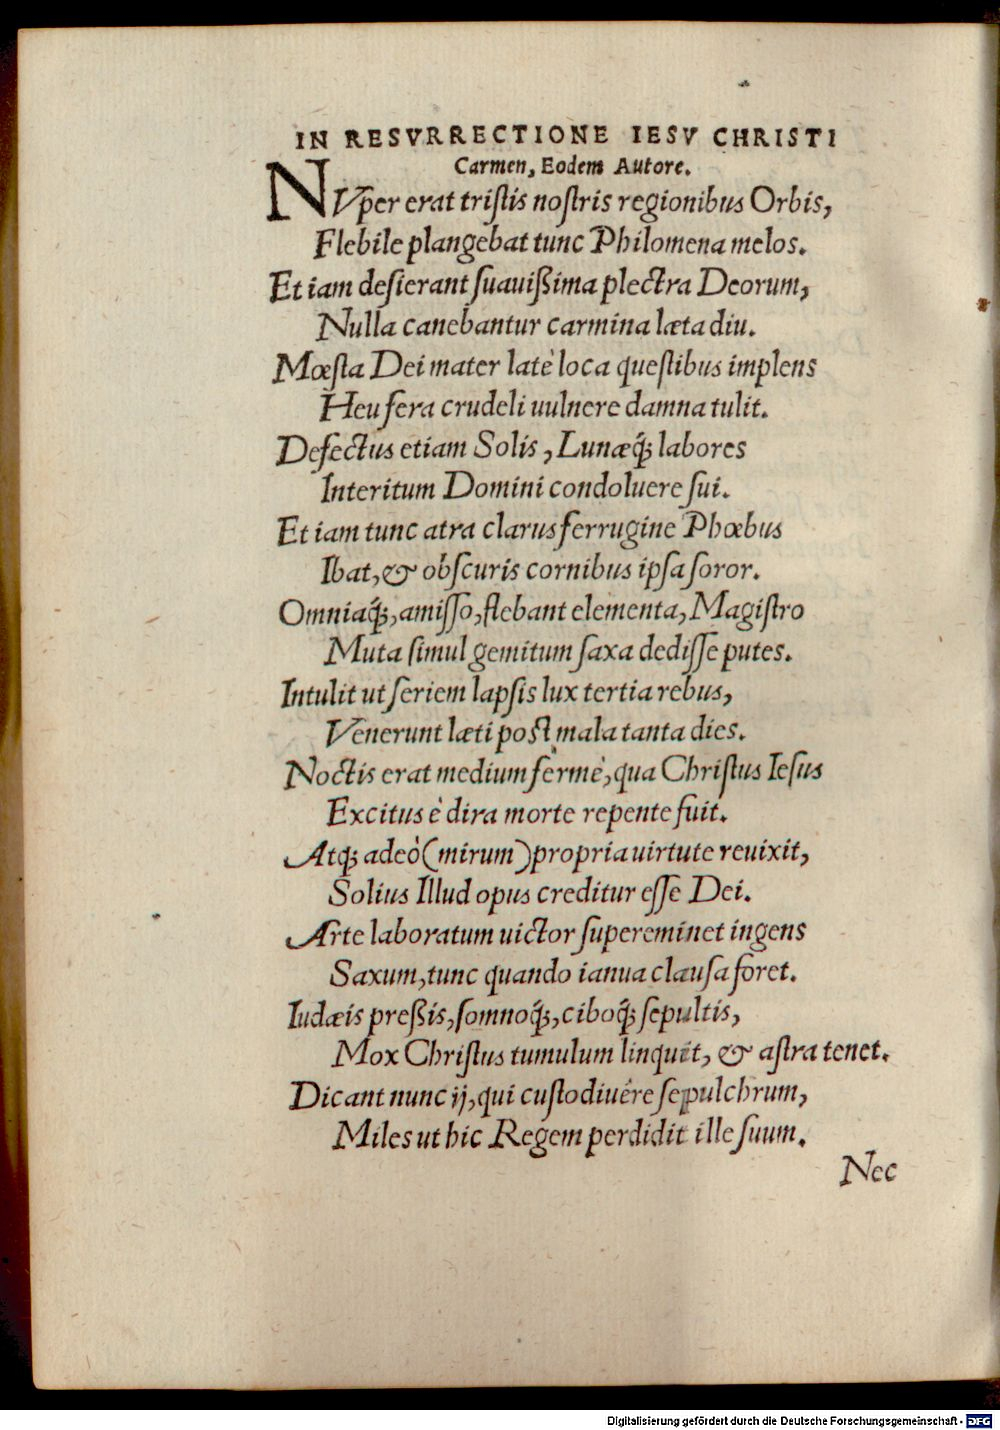 IN RESVRRECTIONE IESV CHRISTI
Carmen, Eodem Autore.
NVper erat tristis nostris regionibus Orbis,
Flebile plangebat tunc Philomena melos.
Et iam desierant suauißima plectra Deorum,
Nulla canebantur carmina læta diu.
Mœsta Dei mater latè loca questibus implens
Heu fera crudeli uulnere damna tulit.
Defectus etiam Solis, Lunæq́; labores
Interitum Domini condoluere sui.
Et iam tunc atra clarus ferrugine Phœbus
Ibat, & obscuris cornibus ipsa soror.
Omniaq́;, amisso, flebant elementa, Magistro
Muta simul gemitum saxa dedisse putes.
Intulit ut seriem lapsis lux tertia rebus,
Venerunt læti post mala tanta dies.
Noctis erat medium fermè, qua Christus Iesus
Excitus è dira morte repente fuit.
Atq; adeò (mirum) propria uirtute reuixit,
Solius Illud opus creditur esse Dei.
Arte laboratum uictor supereminet ingens
Saxum, tunc quando ianua clausa foret.
Iudæis preßis, somnoq́;, ciboq́; sepultis,
Mox Christus tumulum linquit, & astra tenet.
Dicant nunc ij, qui custodiuére sepulchrum,
Miles ut hic Regem perdidit ille suum.
Nec
Digitalisierung gefördert durch die Deutsche Forschungsgemeinschaft - DFG